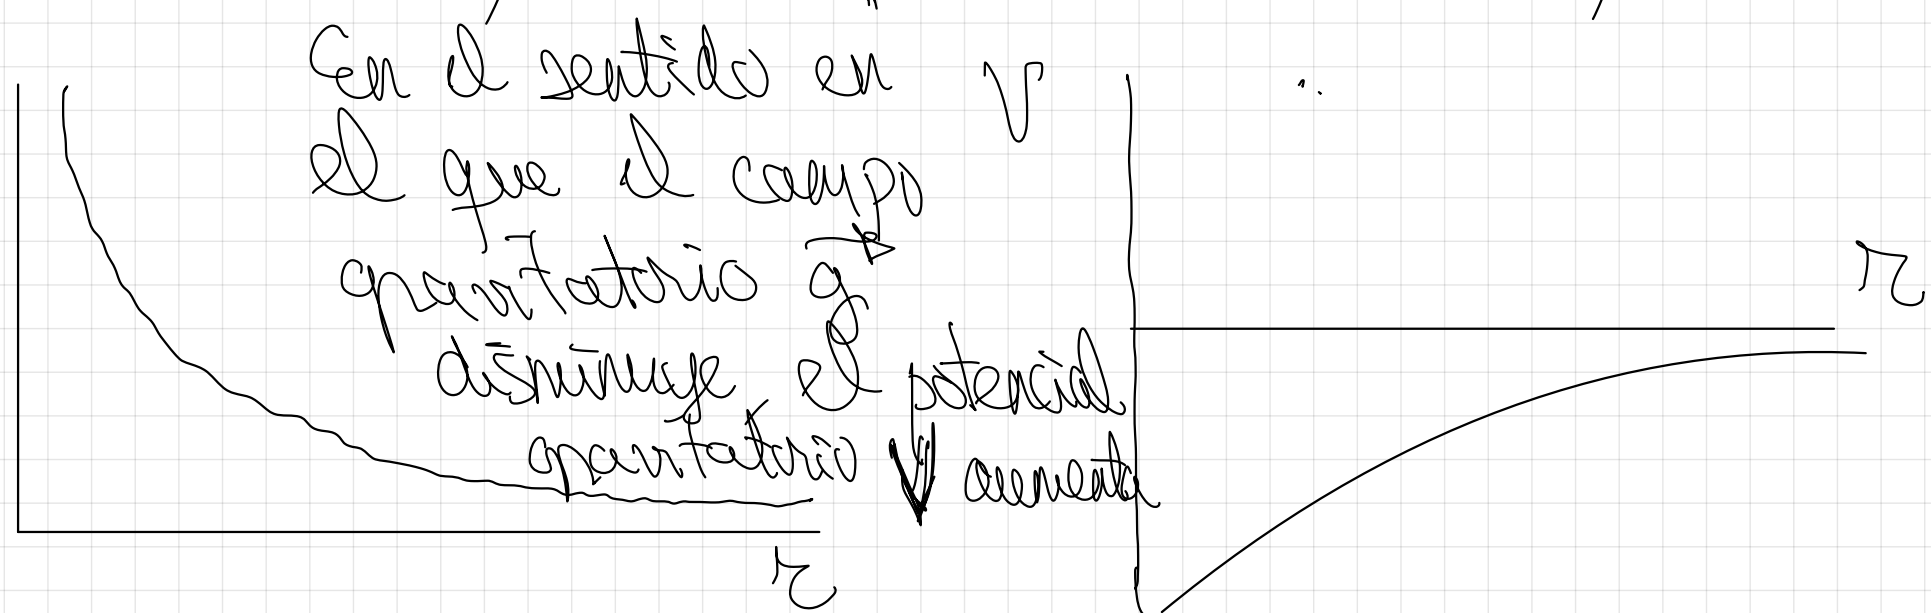 En el sentido en
el que el campo
gravitatorio g⃗
disminuye el potencial
gravitatorio V aumenta
V
r
r